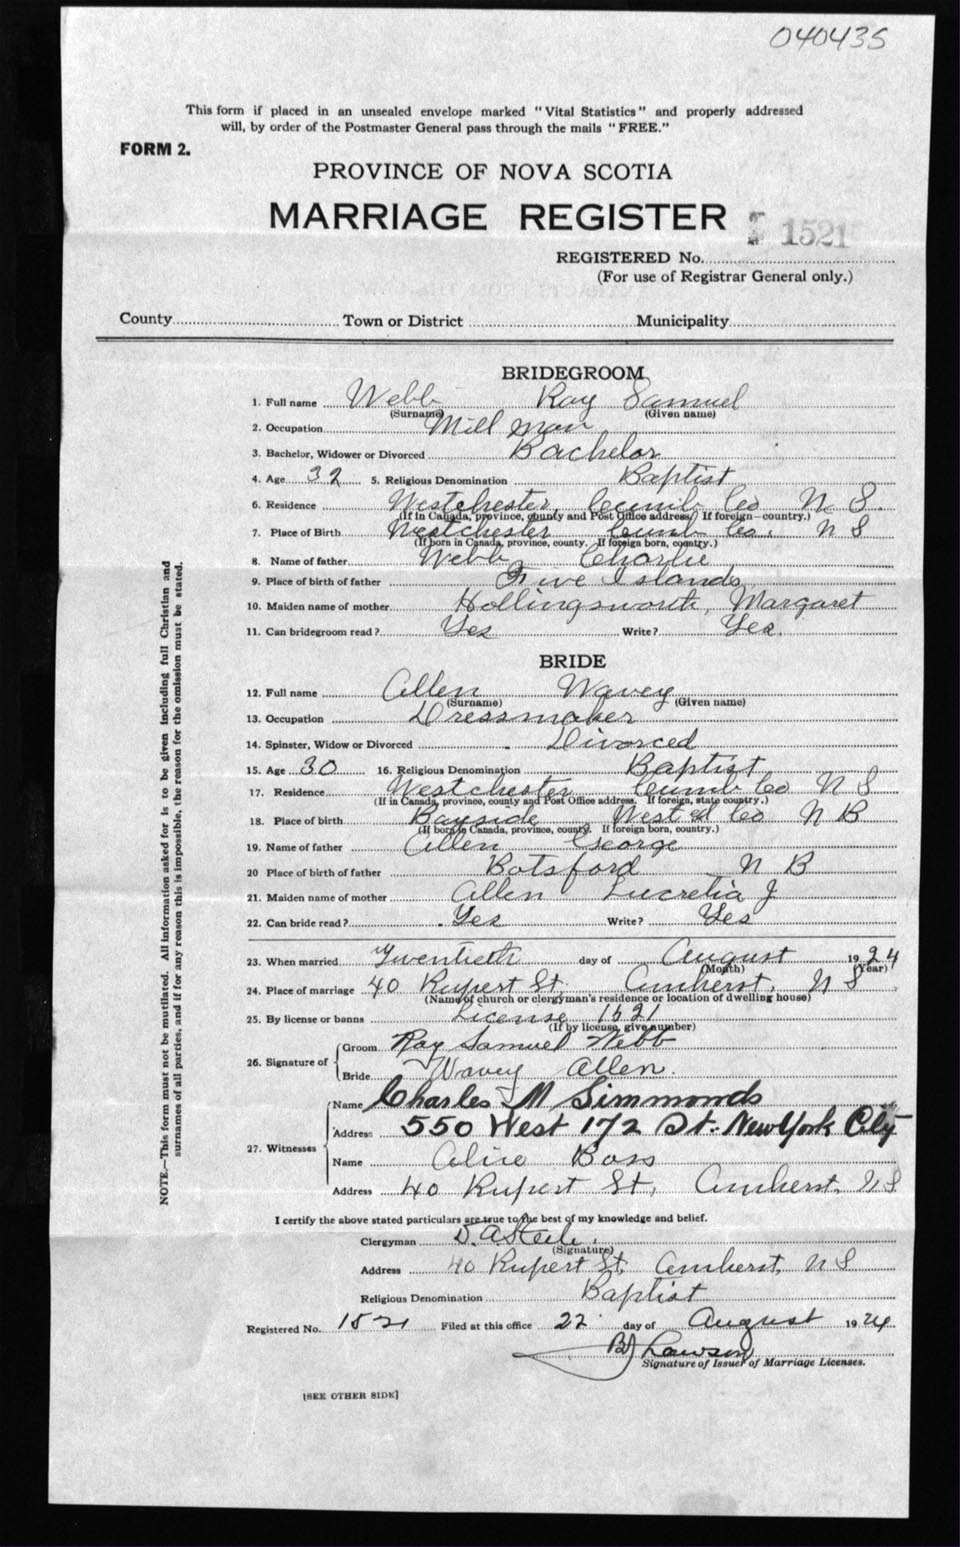 040435
This form if placed in an unsealed envelope marked "Vital Statistics" and properly addressed
will, by order of the Postmaster General pass through the mails "FREE."
FORM 2.
PROVINCE OF NOVA SCOTIA
MARRIAGE REGISTER
1521
REGISTERED No.
(For use of Registrar General only.)
County Town or District Municipality
BRIDEGROOM
1. Full name Webb Ray Samuel
(Surname) (Given name)
2. Occupation Mill man
3. Bachelor, Widower or Divorced Bachelor
4. Age 32 5. Religious Denomination Baptist
6. Residence Westchester, Cumb. Co N S.
(If in Canada, province, county and Post Office address. If foreign—country.)
7. Place of Birth Westchester Cumb Co. N S
(If born in Canada, province, county. If foreign born, country.)
8. Name of father Webb Charlie
9. Place of birth of father Five Islands
10. Maiden name of mother Hollingsworth, Margaret
11. Can bridegroom read? Yes Write? Yes.
BRIDE
12. Full name Allen Wavey
(Surname) (Given name)
13. Occupation Dressmaker
14. Spinster, Widow or Divorced Divorced
15. Age 30 16. Religious Denomination Baptist
17. Residence Westchester Cumb Co N S
(If in Canada, province, county and Post Office address. If foreign, state country.)
18. Place of birth Bayside West'd Co N B
(If born in Canada, province, county. If foreign born, country.)
19. Name of father Allen George
20 Place of birth of father Botsford N B
21. Maiden name of mother Allen Lucretia J
22. Can bride read? Yes Write? Yes
23. When married Twentieth day of August 1924
(Month) (Year)
24. Place of marriage 40 Rupert St. Amherst, N S
(Name of church or clergyman's residence or location of dwelling house)
25. By license or banns License 1521
(If by license, give number)
26. Signature of Groom Ray Samuel Webb
Bride Wavey Allen.
27. Witnesses
Name Charles M Simmonds
Address 550 West 172 St. New York City
Name Alice Boss
Address 40 Rupert St, Amherst, N S
I certify the above stated particulars are true to the best of my knowledge and belief.
Clergyman D. A. Steele.
(Signature)
Address 40 Rupert St, Amherst, N S
Religious Denomination Baptist
Registered No. 1521 Filed at this office 22 day of August 1924
Lawson
Signature of Issuer of Marriage Licenses.
[SEE OTHER SIDE]
NOTE.—This form must not be mutilated. All information asked for is to be given including full Christian and
surnames of all parties, and if for any reason this is impossible, the reason for the omission must be stated.